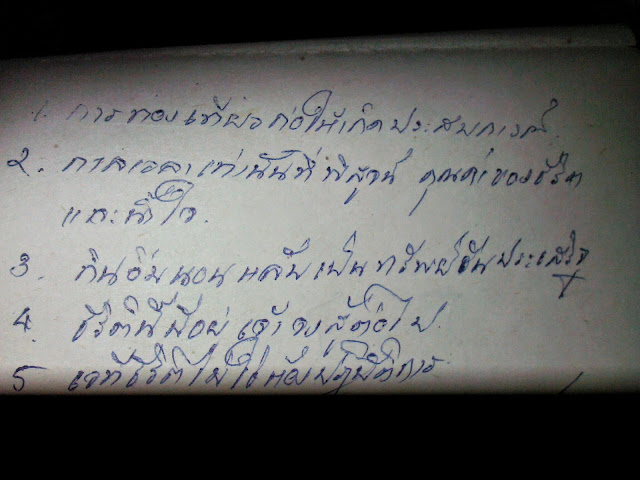 1. การท่องเที่ยวก่อให้เกิดประสบการณ์
๒. กาลเวลาเท่านั้นที่พิสูจน์ คุณค่าของชีวิต
และน้ำใจ.
3. กินอิ่มนอนหลับเป็นทรัพย์อันประเสริฐ
4. ชีวิตนี้มีอยู่ เจ้าจงสู้ต่อไป
5 เวทีชีวิตไม่ใช่ห้องปฏิบัติการ